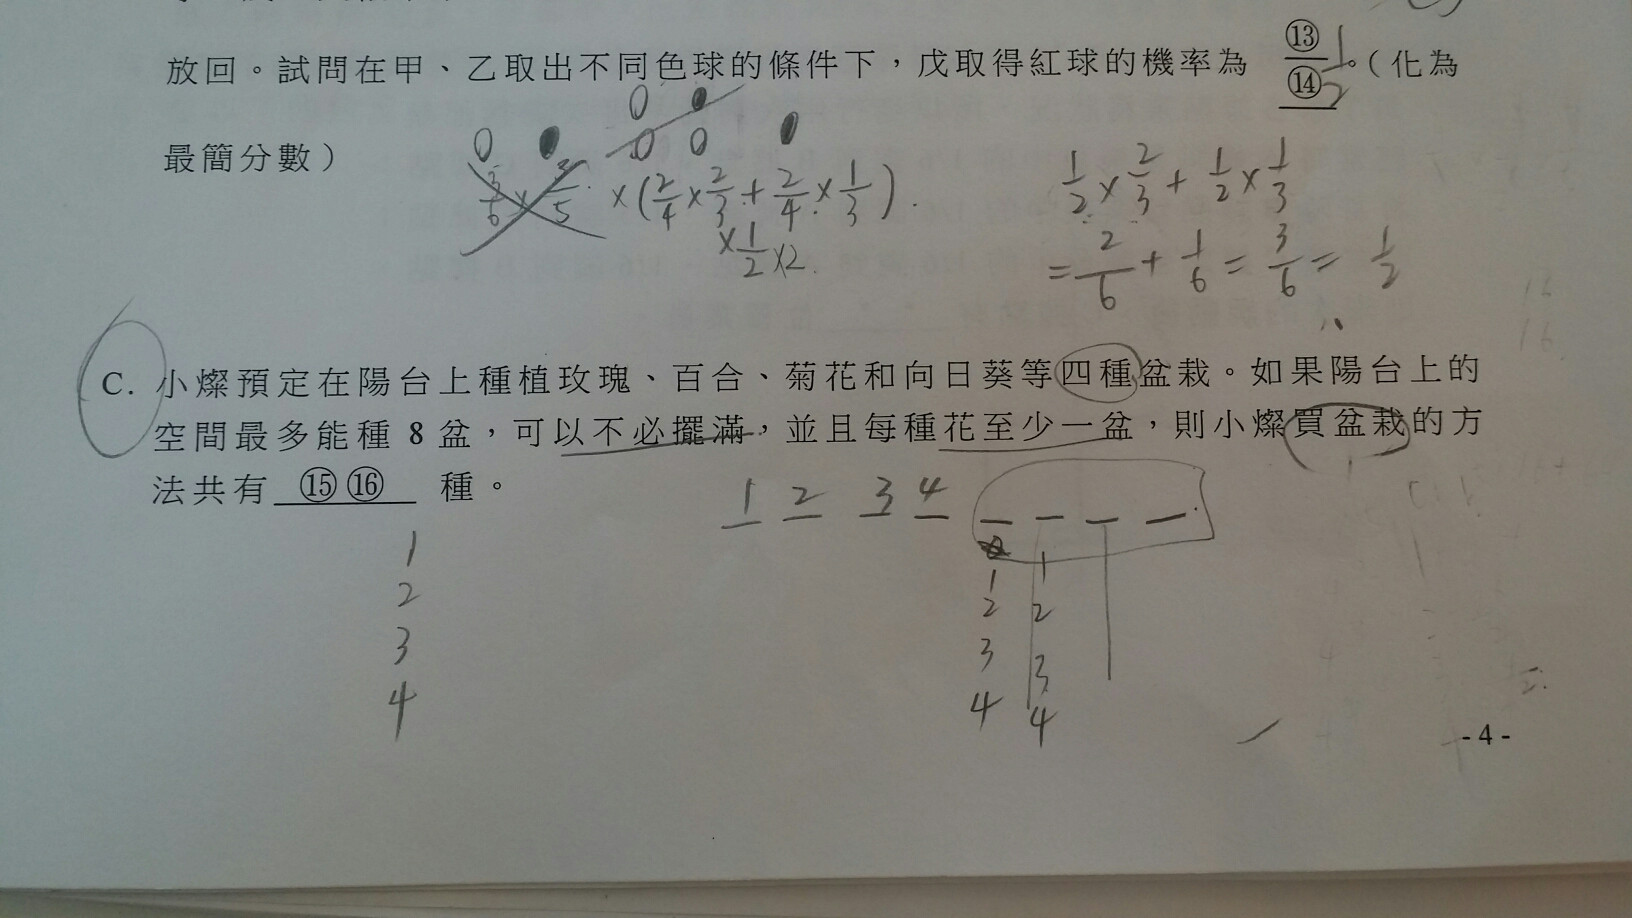 放回。試問在甲、乙取出不同色球的條件下，戊取得紅球的機率為 ⑬/⑭ 1/2 。（化為
0 ●
0 ● 0 0 ●
最簡分數）
3/6 × 3/5 × (2/4 × 2/3 + 2/4 × 1/3).
× 1/2 × 2.
1/2 × 2/3 + 1/2 × 1/3
= 2/6 + 1/6 = 3/6 = 1/2
C. 小燦預定在陽台上種植玫瑰、百合、菊花和向日葵等四種盆栽。如果陽台上的
空間最多能種 8 盆，可以不必擺滿，並且每種花至少一盆，則小燦買盆栽的方
法共有 ⑮⑯ 種。
1 2 3 4
1
2
3
4
1 1
2 2
3 3
4 4
- 4 -